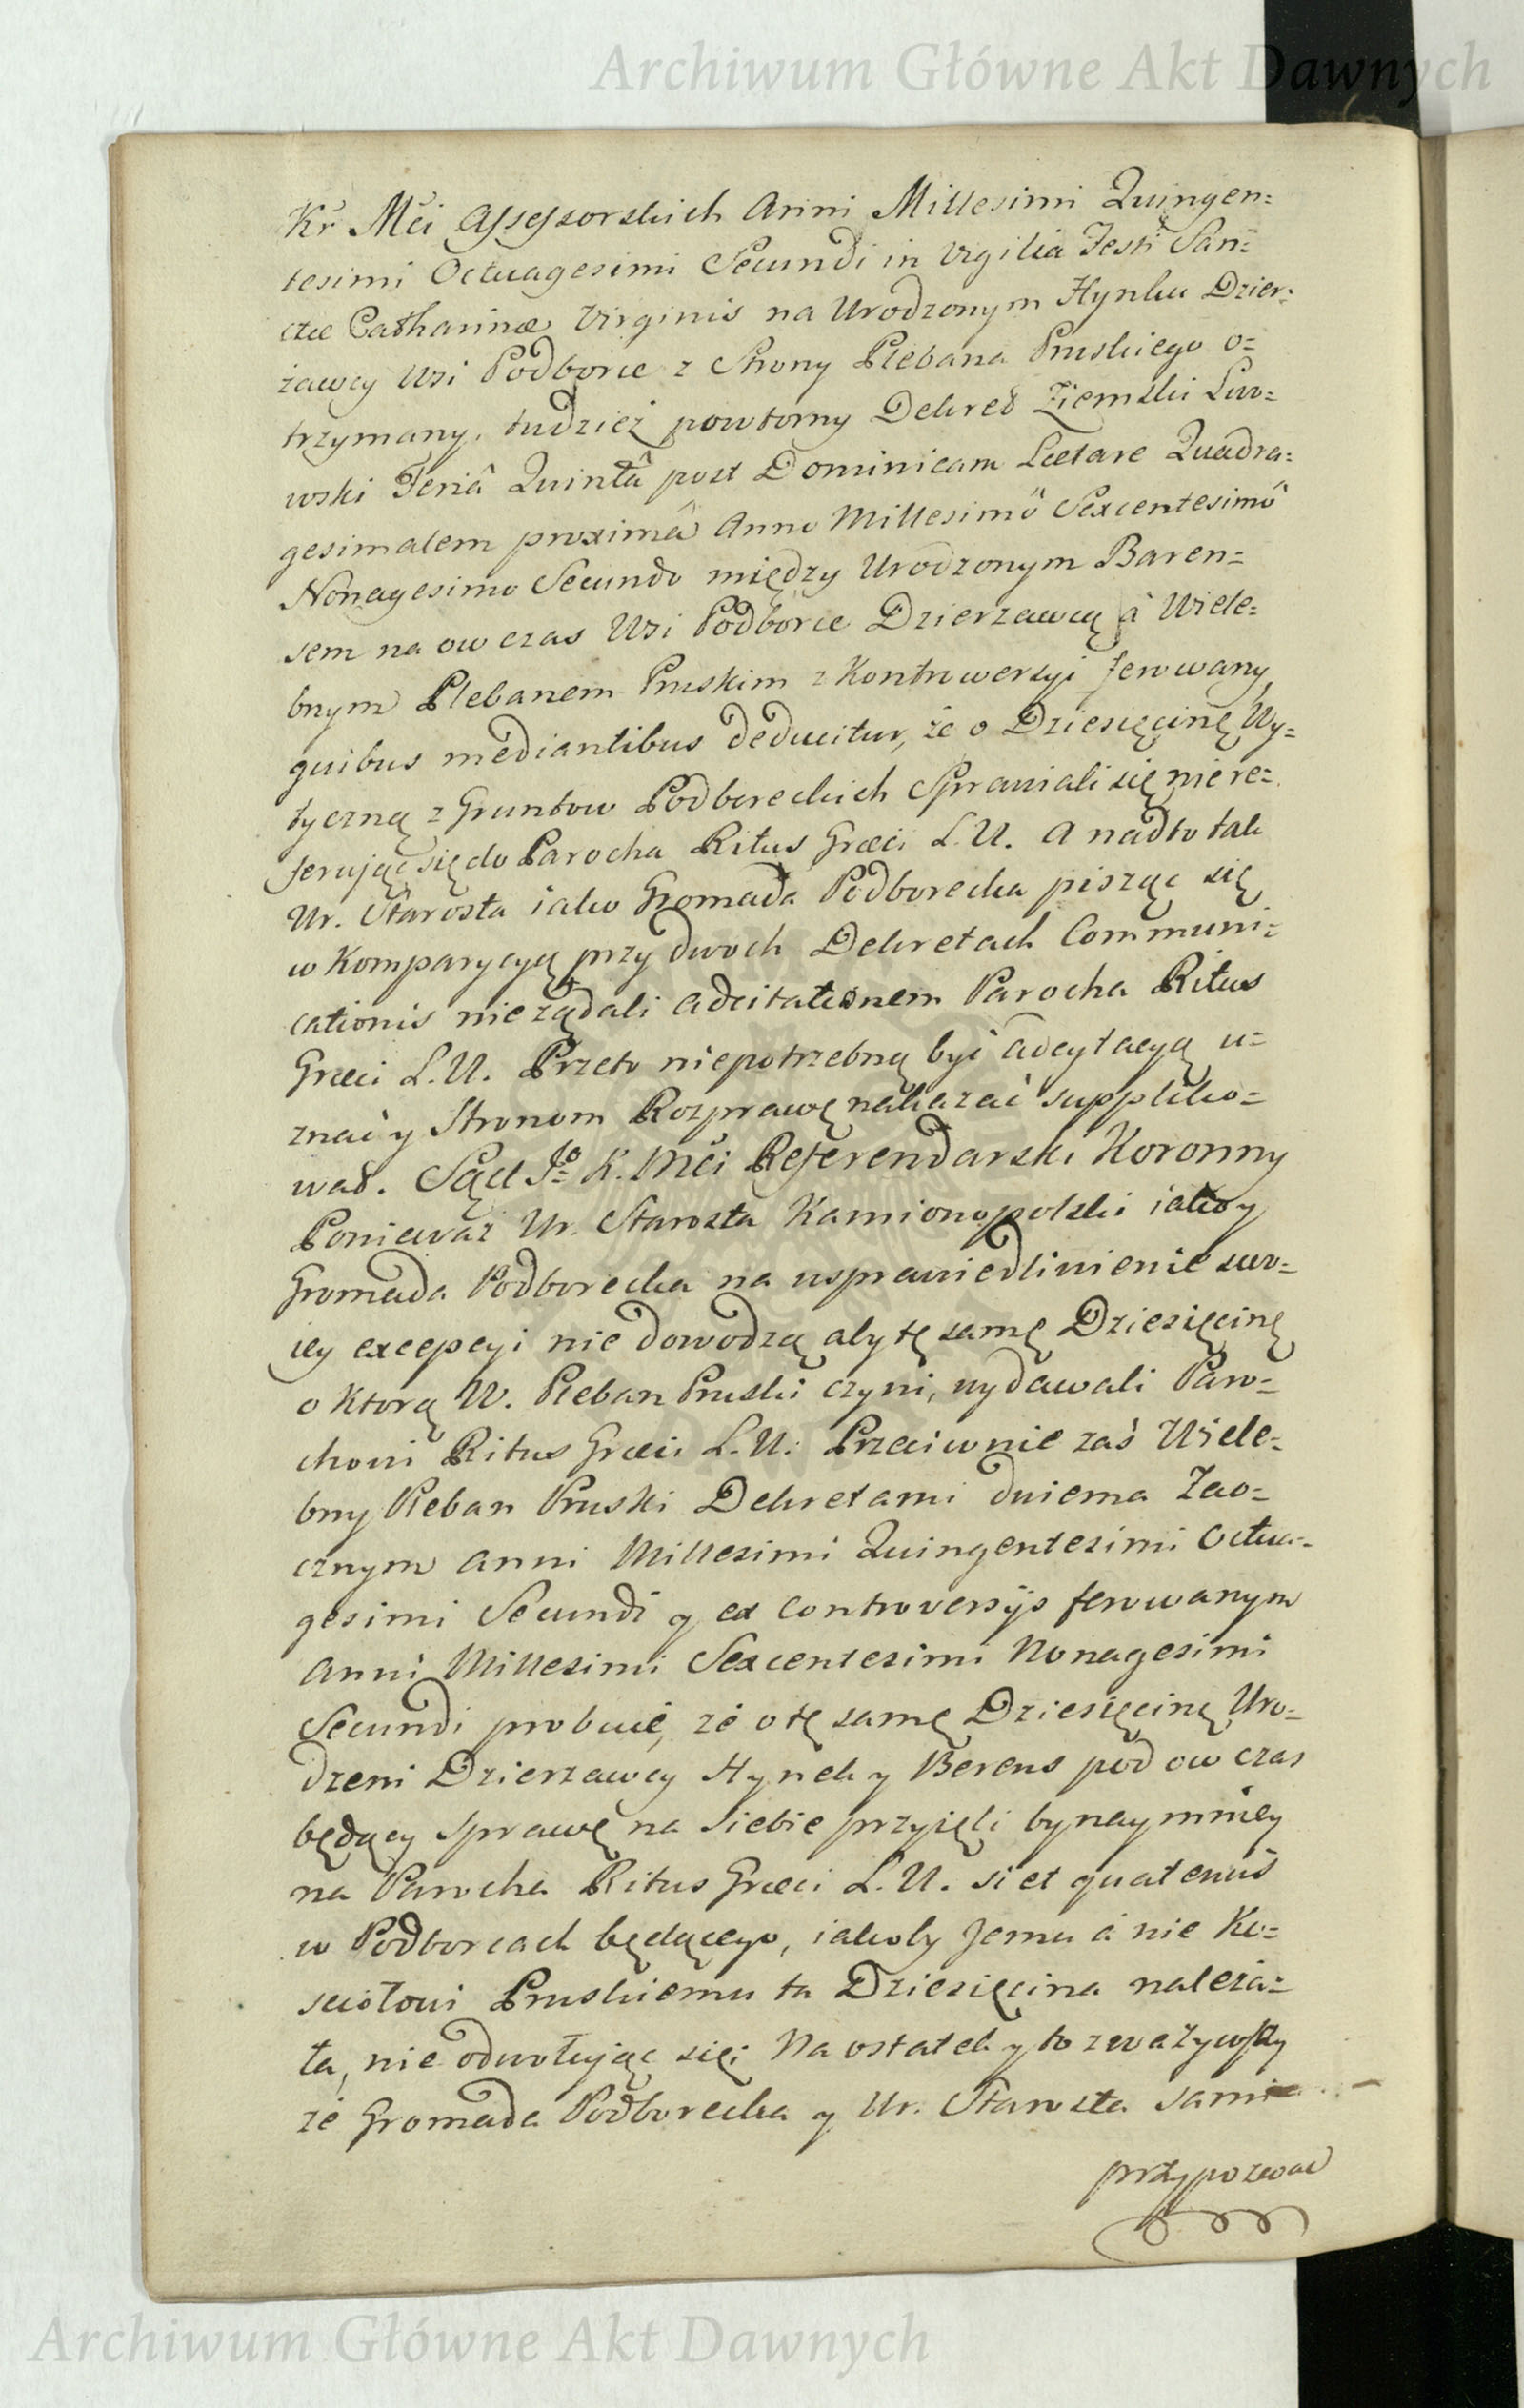 Archiwum Główne Akt Dawnych
Kr Mci Assessorskich Anni Millesimi Quingen=
tesimi Octuagesimi Secundi in Vigilia Festi San=
ctae Catharinae Virginis na Urodzonym Hynku Dzier=
żawcy Wsi Podborce z Strony Plebana Pruskiego o=
trzymany, tudzież powtorny Dekret Ziemski Lwo=
wski Feriâ Quintâ post Dominicam Laetare Quadra=
gesimalem proximâ Anno Millesimo Sexcentesimo
Nonagesimo Secundo między Urodzonym Baren=
sem na ow czas Wsi Podborce Dzierzawcą à Wiele=
bnym Plebanem Pruskim z Kontrowersyi ferowany,
quibus mediantibus deducitur, że o Dziesięcinę Wy=
tyczną z Gruntow Podboreckich Sprawiali się nie re=
ferując się do Parocha Ritus Graeci L. U. a nadto tak
Ur. Starosta iako Gromada Podborecka pisząc się
w Komparycyą przy dwoch Dekretach Communi=
cationis nieżądali adcitationem Parocha Ritus
Graeci L. U. Przeto niepotrzebną byi adcytacyą u=
znać y Stronom Rozprawę nakazać suppliko=
wał. Sąd Jo K. Mci Referendarski Koronny
Poniewaz Ur. Starosta Kamionopolski iako y
Gromada Podborecka na usprawiedliwienie swo=
iey excepcyi nie dowodzą aby tę samę Dziesięcinę
o Ktorą W. Pleban Pruski czyni, wydawali Paro=
chowi Ritus Graeci L. U: Przeciwnie zaś Wiele=
bny Pleban Pruski Dekretami dwiema Zao=
cznym Anni Millesimi Quingentesimi Octua=
gesimi Secundi y ex controversijs ferowanym
Anni Millesimi Sexcentesimi Nonagesimi
Secundi probuie, że o tę samę Dziesięcinę Uro=
dzeni Dzierzawcy Hynek y Berens pod ow czas
będący sprawę na siebie przyięli bynaymniey
na Parocha Ritus Graeci L. U. si et quatenus
w Podborcach będącego, iakoby Jemu à nie Ko=
sciołowi Pruskiemu ta Dziesięcina należa=
ła, nie odwołując się; Na ostatek y to zwazywszy
że Gromada Podborecka y Ur. Starosta sami
przypozwać
Archiwum Główne Akt Dawnych